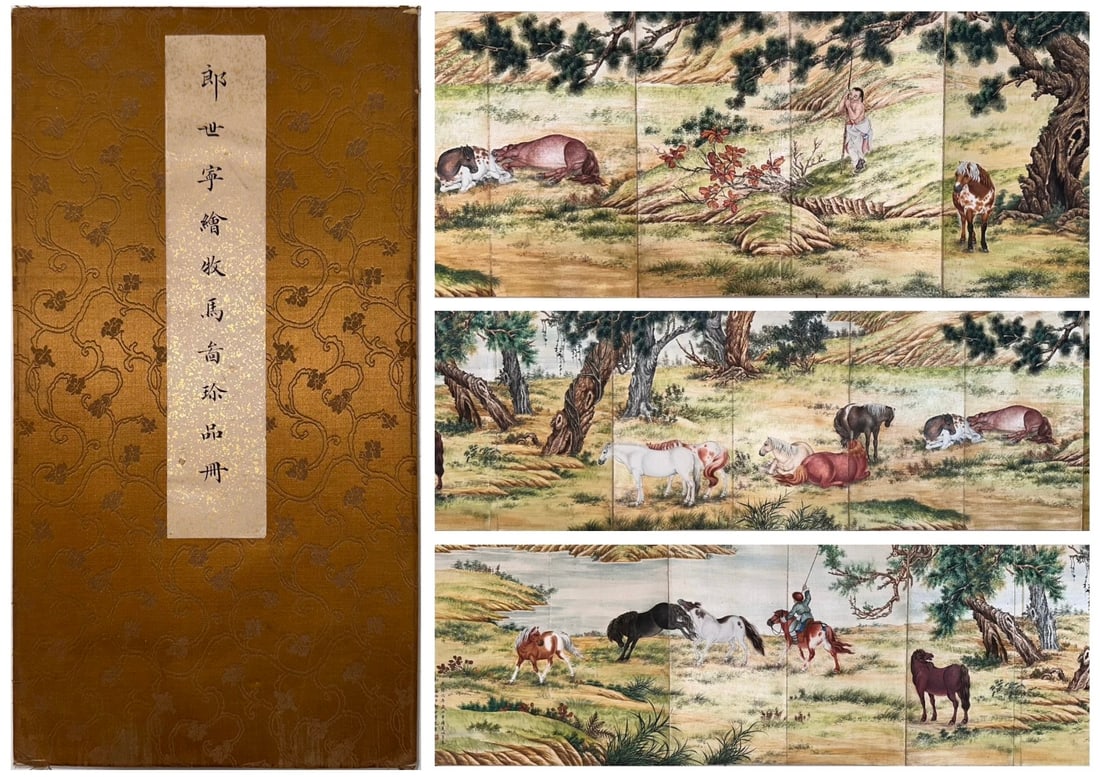 郎世寧繪牧馬啚珍品冊